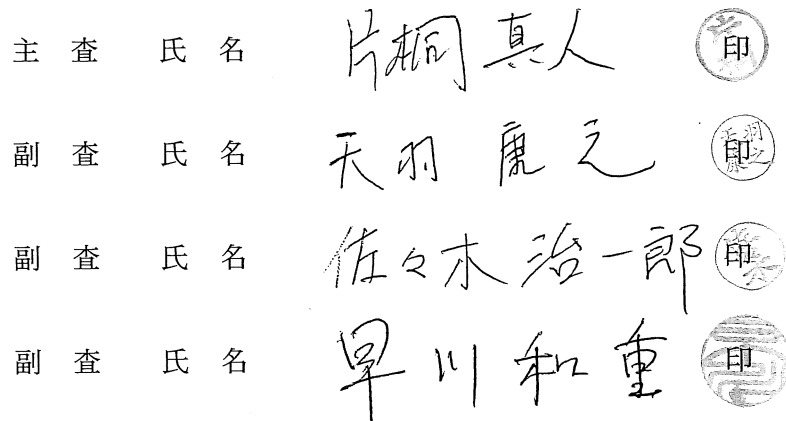 主 査 氏 名 片桐 真人 印
副 査 氏 名 天羽 康之 印
副 査 氏 名 佐々木 治一郎 印
副 査 氏 名 早川 和重 印